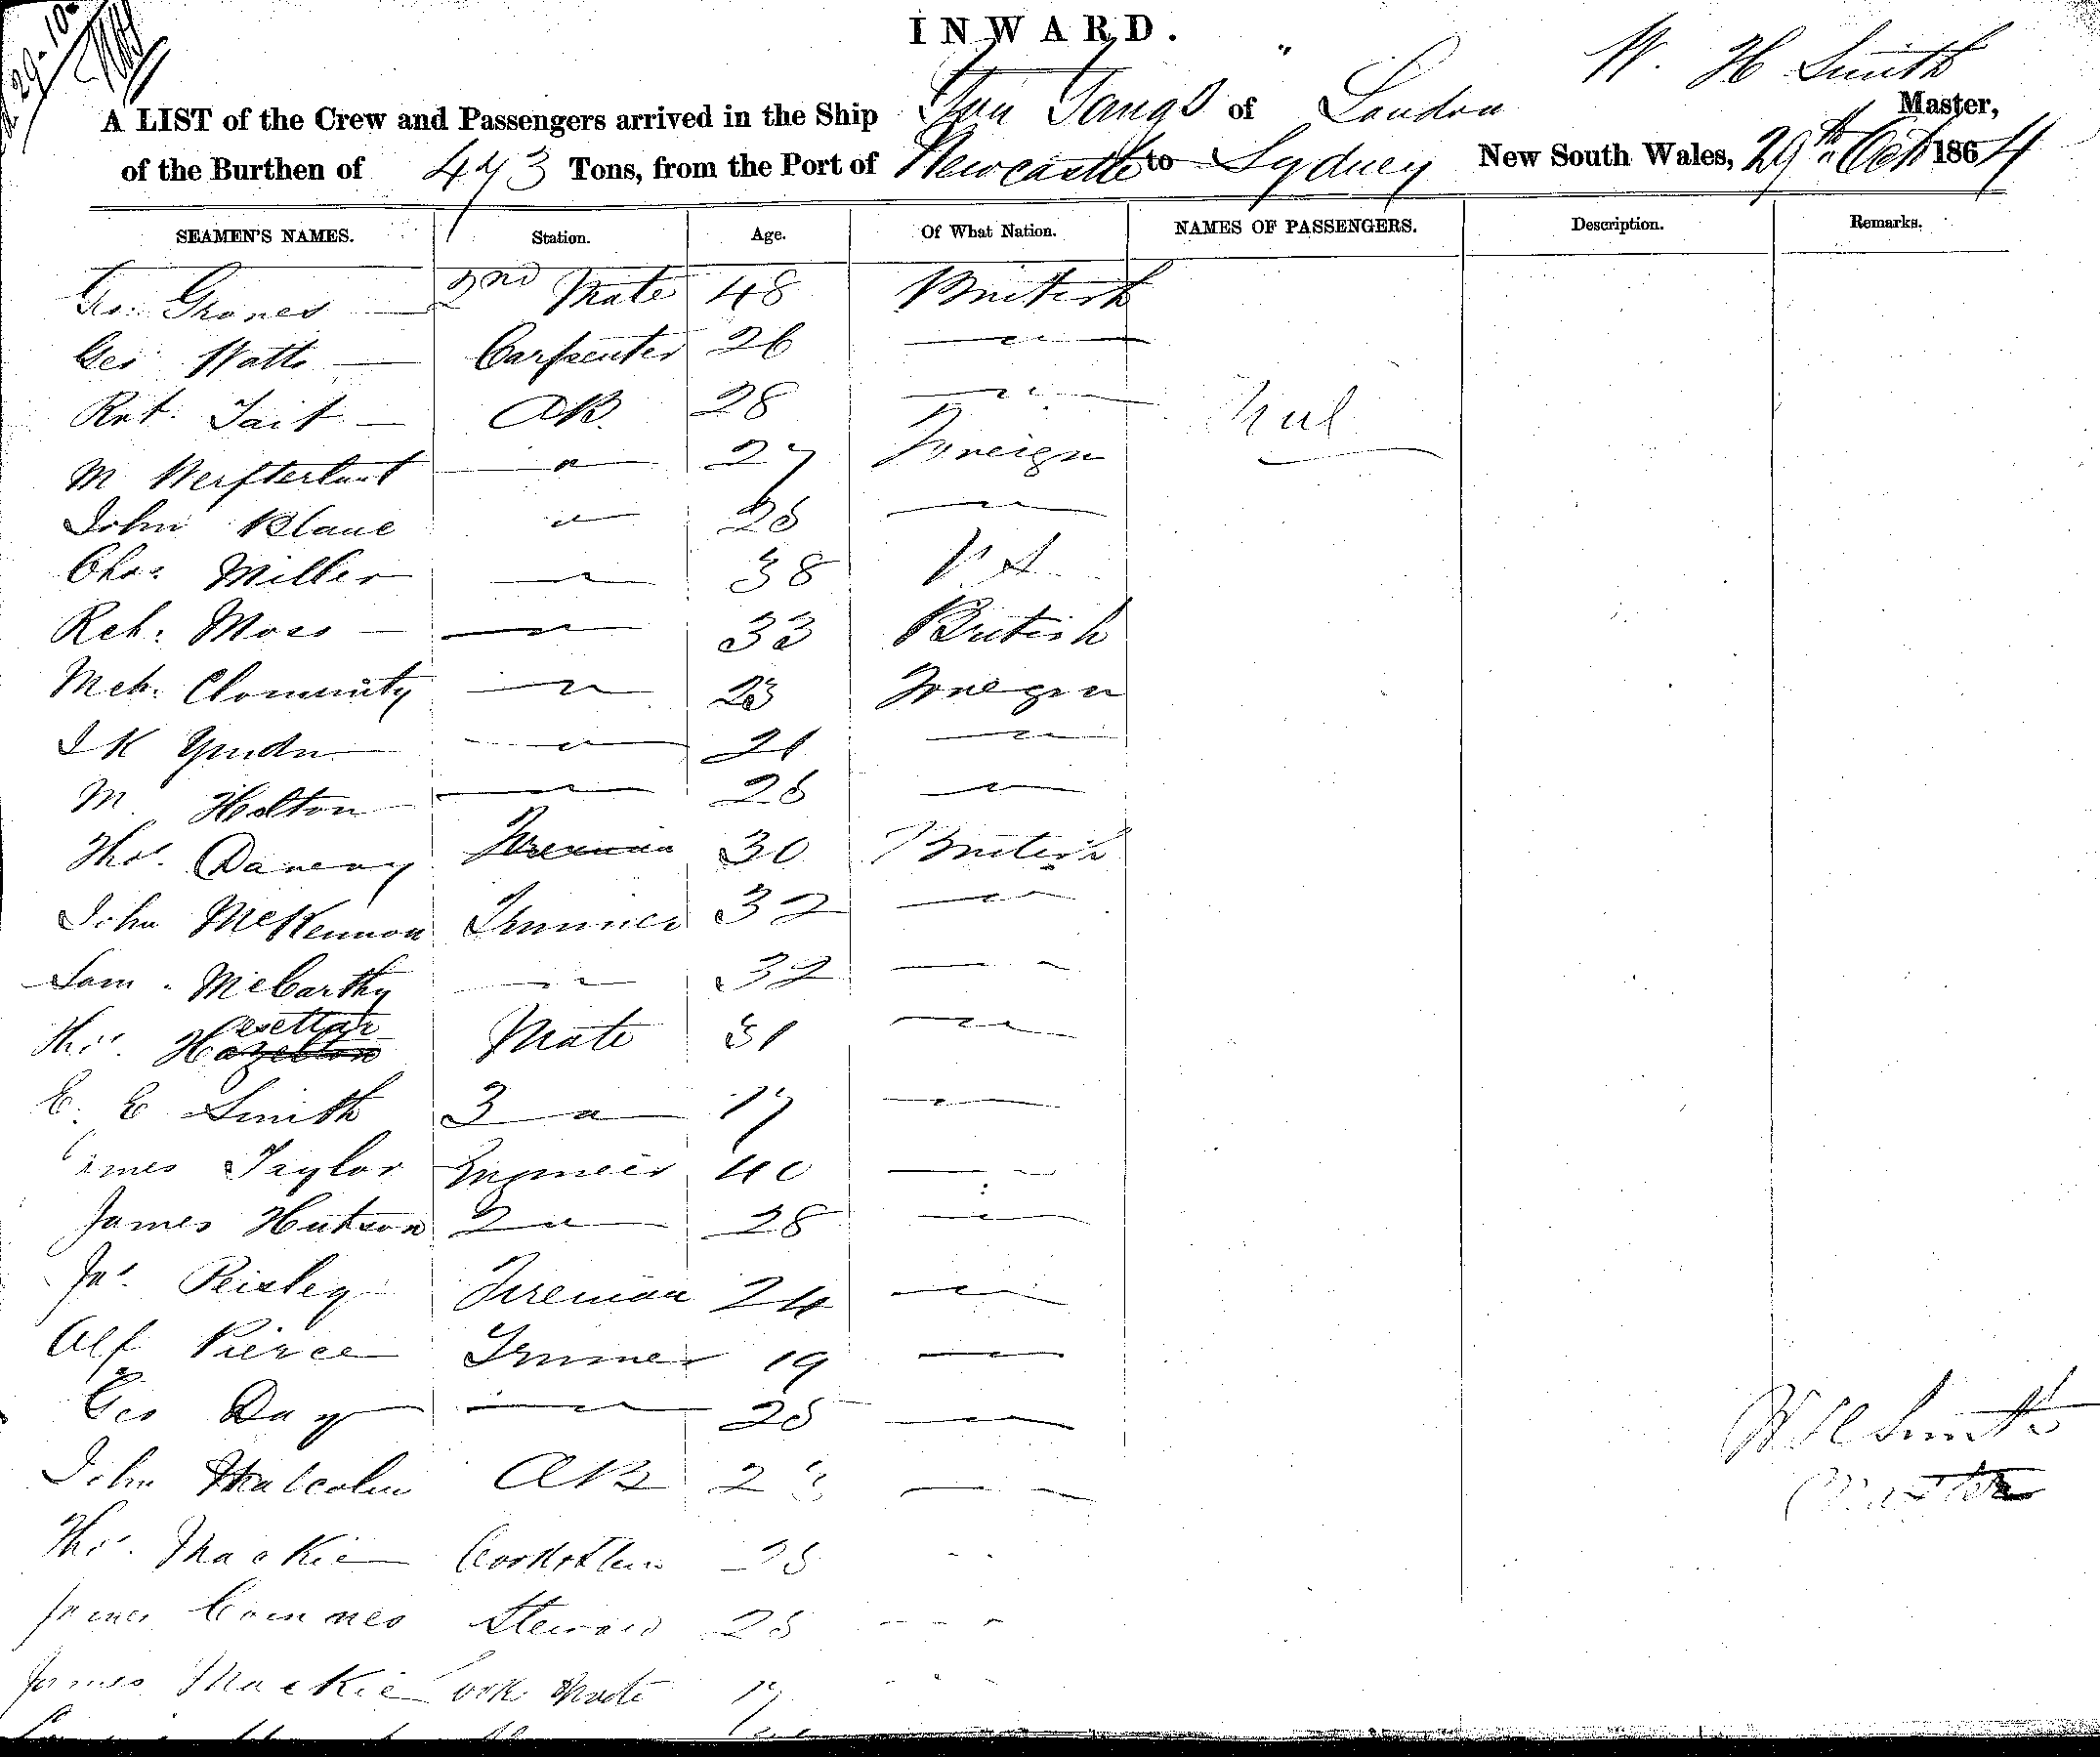 29-10
INWARD.
W. H Smith
A LIST of the Crew and Passengers arrived in the Ship of London Master,
of the Burthen of 473 Tons, from the Port of Newcastle to Sydney New South Wales, 29th Oct 1864
SEAMEN'S NAMES. Station. Age. Of What Nation. NAMES OF PASSENGERS. Description. Remarks.
2nd Mate 48 British
Geo Watts Carpenter 26 — " —
Rot. Tait — AB 28 — " —
Nul
M — " — 27 Foreign
John Blane — " — — " —
Chas Miller — " — 38
Rch. Moss — — " — 33 British
Mch. — " — 23 Foreign
J K — " — 21 — " —
M. Holton — " — — " —
Thos. Fireman 30 British
John McKennon Trimmer 32 — " —
Sam. McCarthy — " — 32 — " —
Thos. Hesettar Mate 31 — " —
E. E Smith 3 — " — 17 — " —
James Taylor Engineer 40 — " —
James Hutson 2 — " — 28 — " —
Jas. Peisley Fireman 24 — " —
Alf Pierce Trimmer 19 — " —
Geo Day — " — 25 — " —
W H Smith
John Malcolm AB — " —
Master
Thos. Mackie 25
James Steward 25
James Mackie Cook Mate 17